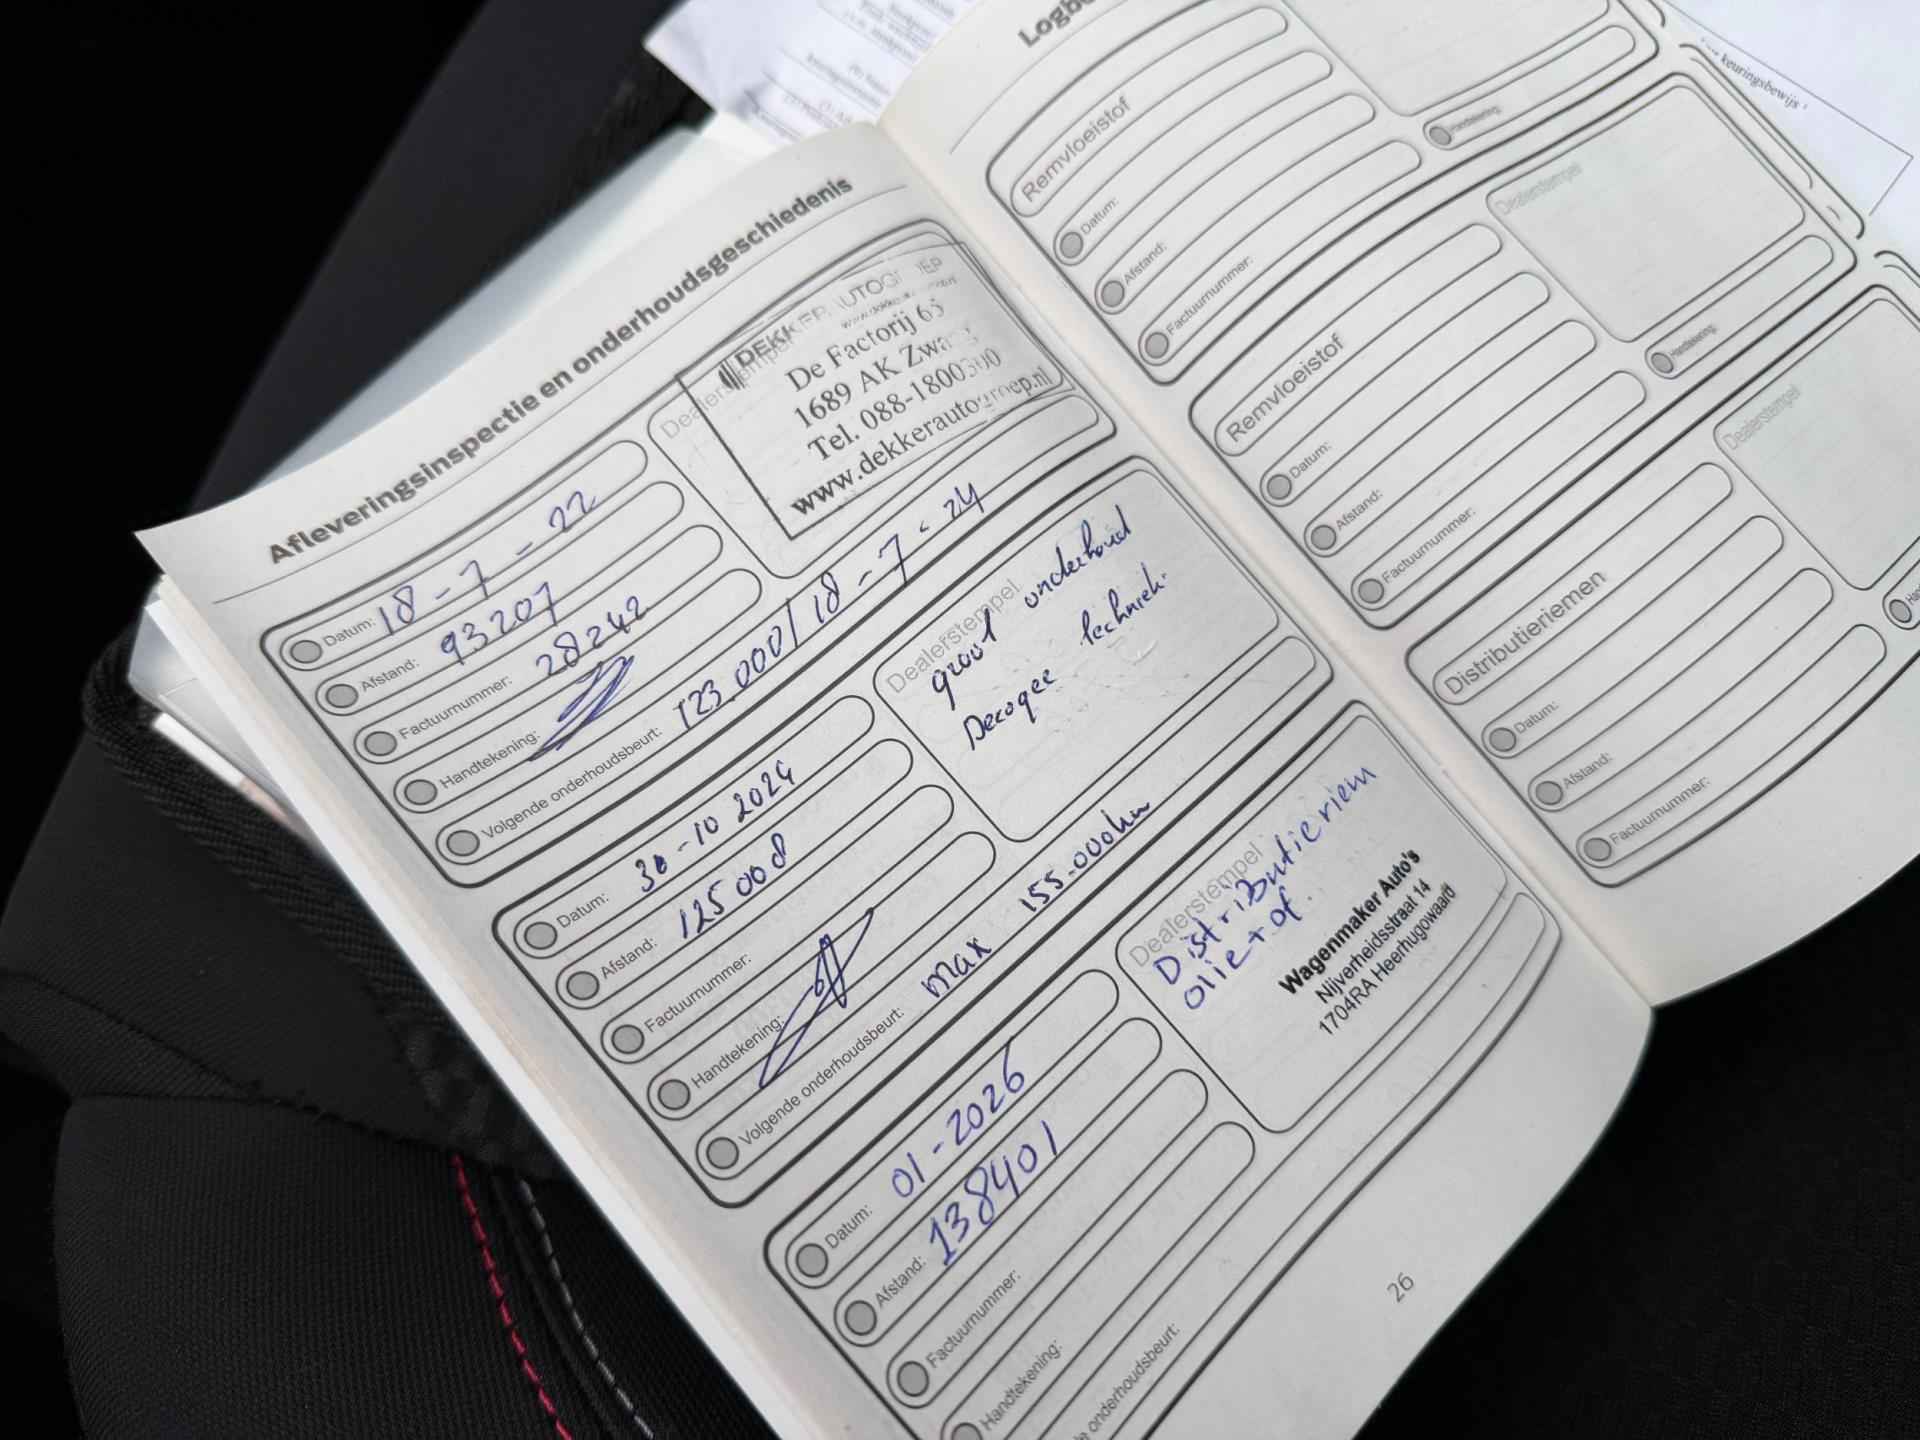 Afleveringsinspectie en onderhoudsgeschiedenis
Datum: 18-7-22
Afstand: 93207
Factuurnummer: 28242
Handtekening:
Volgende onderhoudsbeurt: 123.000/18-7-24
Dealerstempel
DEKKER AUTOGROEP
De Factorij 65
1689 AK Zwaag
Tel. 088-1800300
www.dekkerautogroep.nl
Datum: 30-10 2024
Afstand: 125 008
Factuurnummer:
Handtekening:
Volgende onderhoudsbeurt: max 155.000km
Dealerstempel
groot onderhoud
techniek.
Datum: 01-2026
Afstand: 138401
Factuurnummer:
Handtekening:
onderhoudsbeurt:
Dealerstempel
Distributieriem
olie + of.
Wagenmaker Auto's
Nijverheidsstraat 14
1704RA Heerhugowaard
26
Remvloeistof
Datum:
Afstand:
Factuurnummer:
Handtekening:
Remvloeistof
Datum:
Afstand:
Factuurnummer:
Dealerstempel
Handtekening:
Distributieriemen
Datum:
Afstand:
Factuurnummer:
Dealerstempel
keuringsbewijs